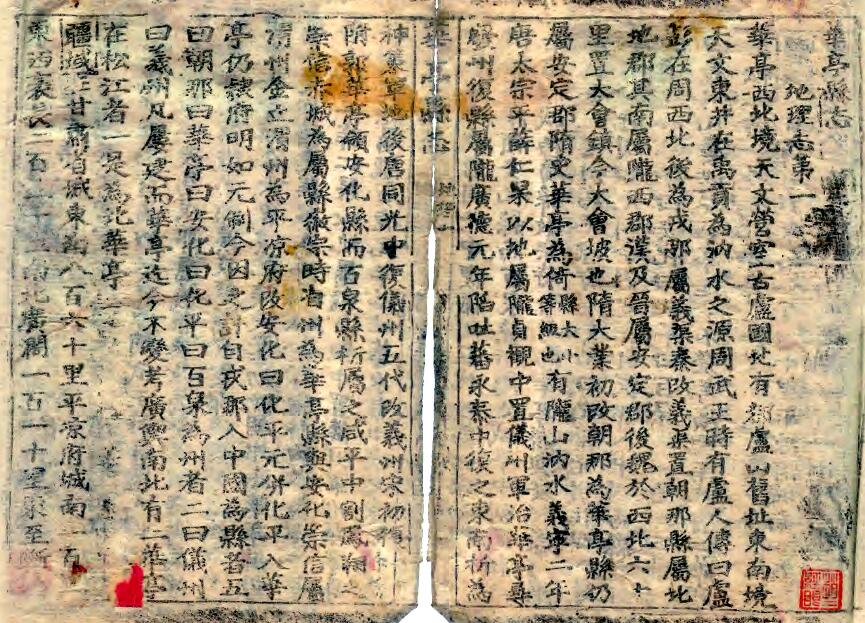 華亭縣志
地理志第一
華亭西北境天文營室古盧國地有郡盧山舊址東南境
天文東井在禹貢為汭水之源周武王時有盧人傳曰盧
彭在周西北後為戎那屬義渠秦改義渠置朝那縣屬北
地郡其南屬隴西郡漢及晉屬安定郡後魏於西北六十
里置大會鎮今大會坡也隋大業初改朝那為華亭縣仍
屬安定郡隋史華亭為倚縣大小等級也有隴山汭水義寧二年
唐太宗平薛仁杲以地屬隴貞觀中置儀州軍治華亭尋
廢州復縣屬隴廣德元年陷吐蕃永泰中復之東南析為
華亭縣志 地理
神策軍地後唐同光中復儀州五代改義州宋初復
附郭華亭領安化縣而百泉縣析屬之咸平中割鳳翔之
崇信赤城為屬縣徽宗時省州為華亭縣與安化崇信屬
渭州金立渭州為平凉府改安化曰化平元併化平入華
亭仍隸府明如元制今因之計自戎那入中國為縣者五
曰朝那曰華亭曰安化曰化平曰百泉為州者二曰儀州
曰義州凡屢建而華亭迄今不變考廣輿南北有二華亭
在松江者一是為北華亭
疆域在甘肅省城東南八百六十里平凉府城南一百
東西袤長二百二十里南北廣闊一百一十里東至